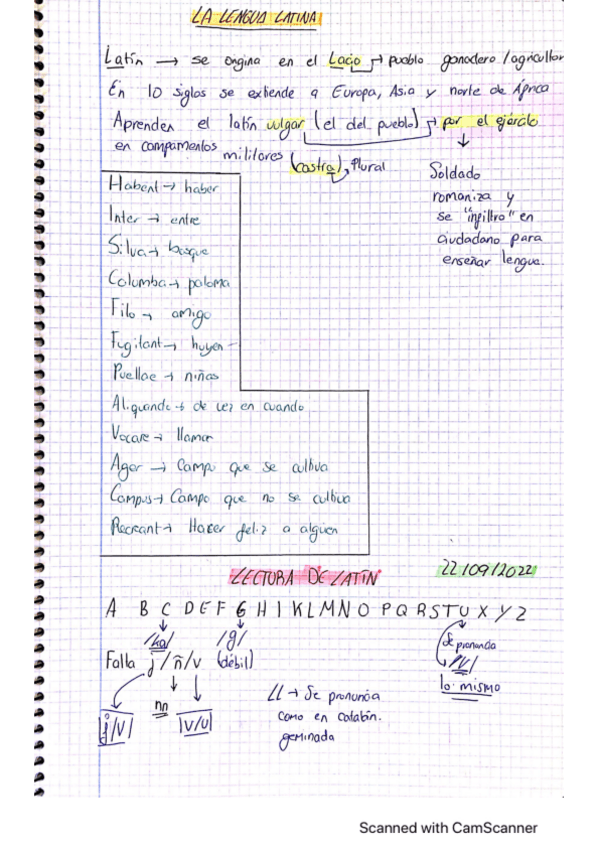 LA LENGUA LATINA
Latín → se origina en el Lacio → pueblo ganadero/agricultor
En 10 siglos se extiende a Europa, Asia y norte de África
Aprenden el latín vulgar (el del pueblo) → por el ejército
en campamentos militares (castra), plural
Soldado
romaniza y
se "infiltra" en
ciudadano para
enseñar lengua.
Habent → haber
Inter → entre
Silva → bosque
Columba → paloma
Filo → amigo
Fugitant → huyen
Puellae → niñas
Aliquando → de vez en cuando
Vocare → llamar
Ager → Campo que se cultiva
Campus → Campo que no se cultiva
Recreant → Hacer feliz a alguien
LECTURA DE LATÍN 22/09/2022
A B C D E F G H I K L M N O P Q R S T U X Y Z
/ka/ /g/ Se pronuncia
Falla j/ñ/v (débil) /V/
lo mismo
nn
|j/V| |V/U|
LL → Se pronuncia
como en catalán.
geminada
Scanned with CamScanner